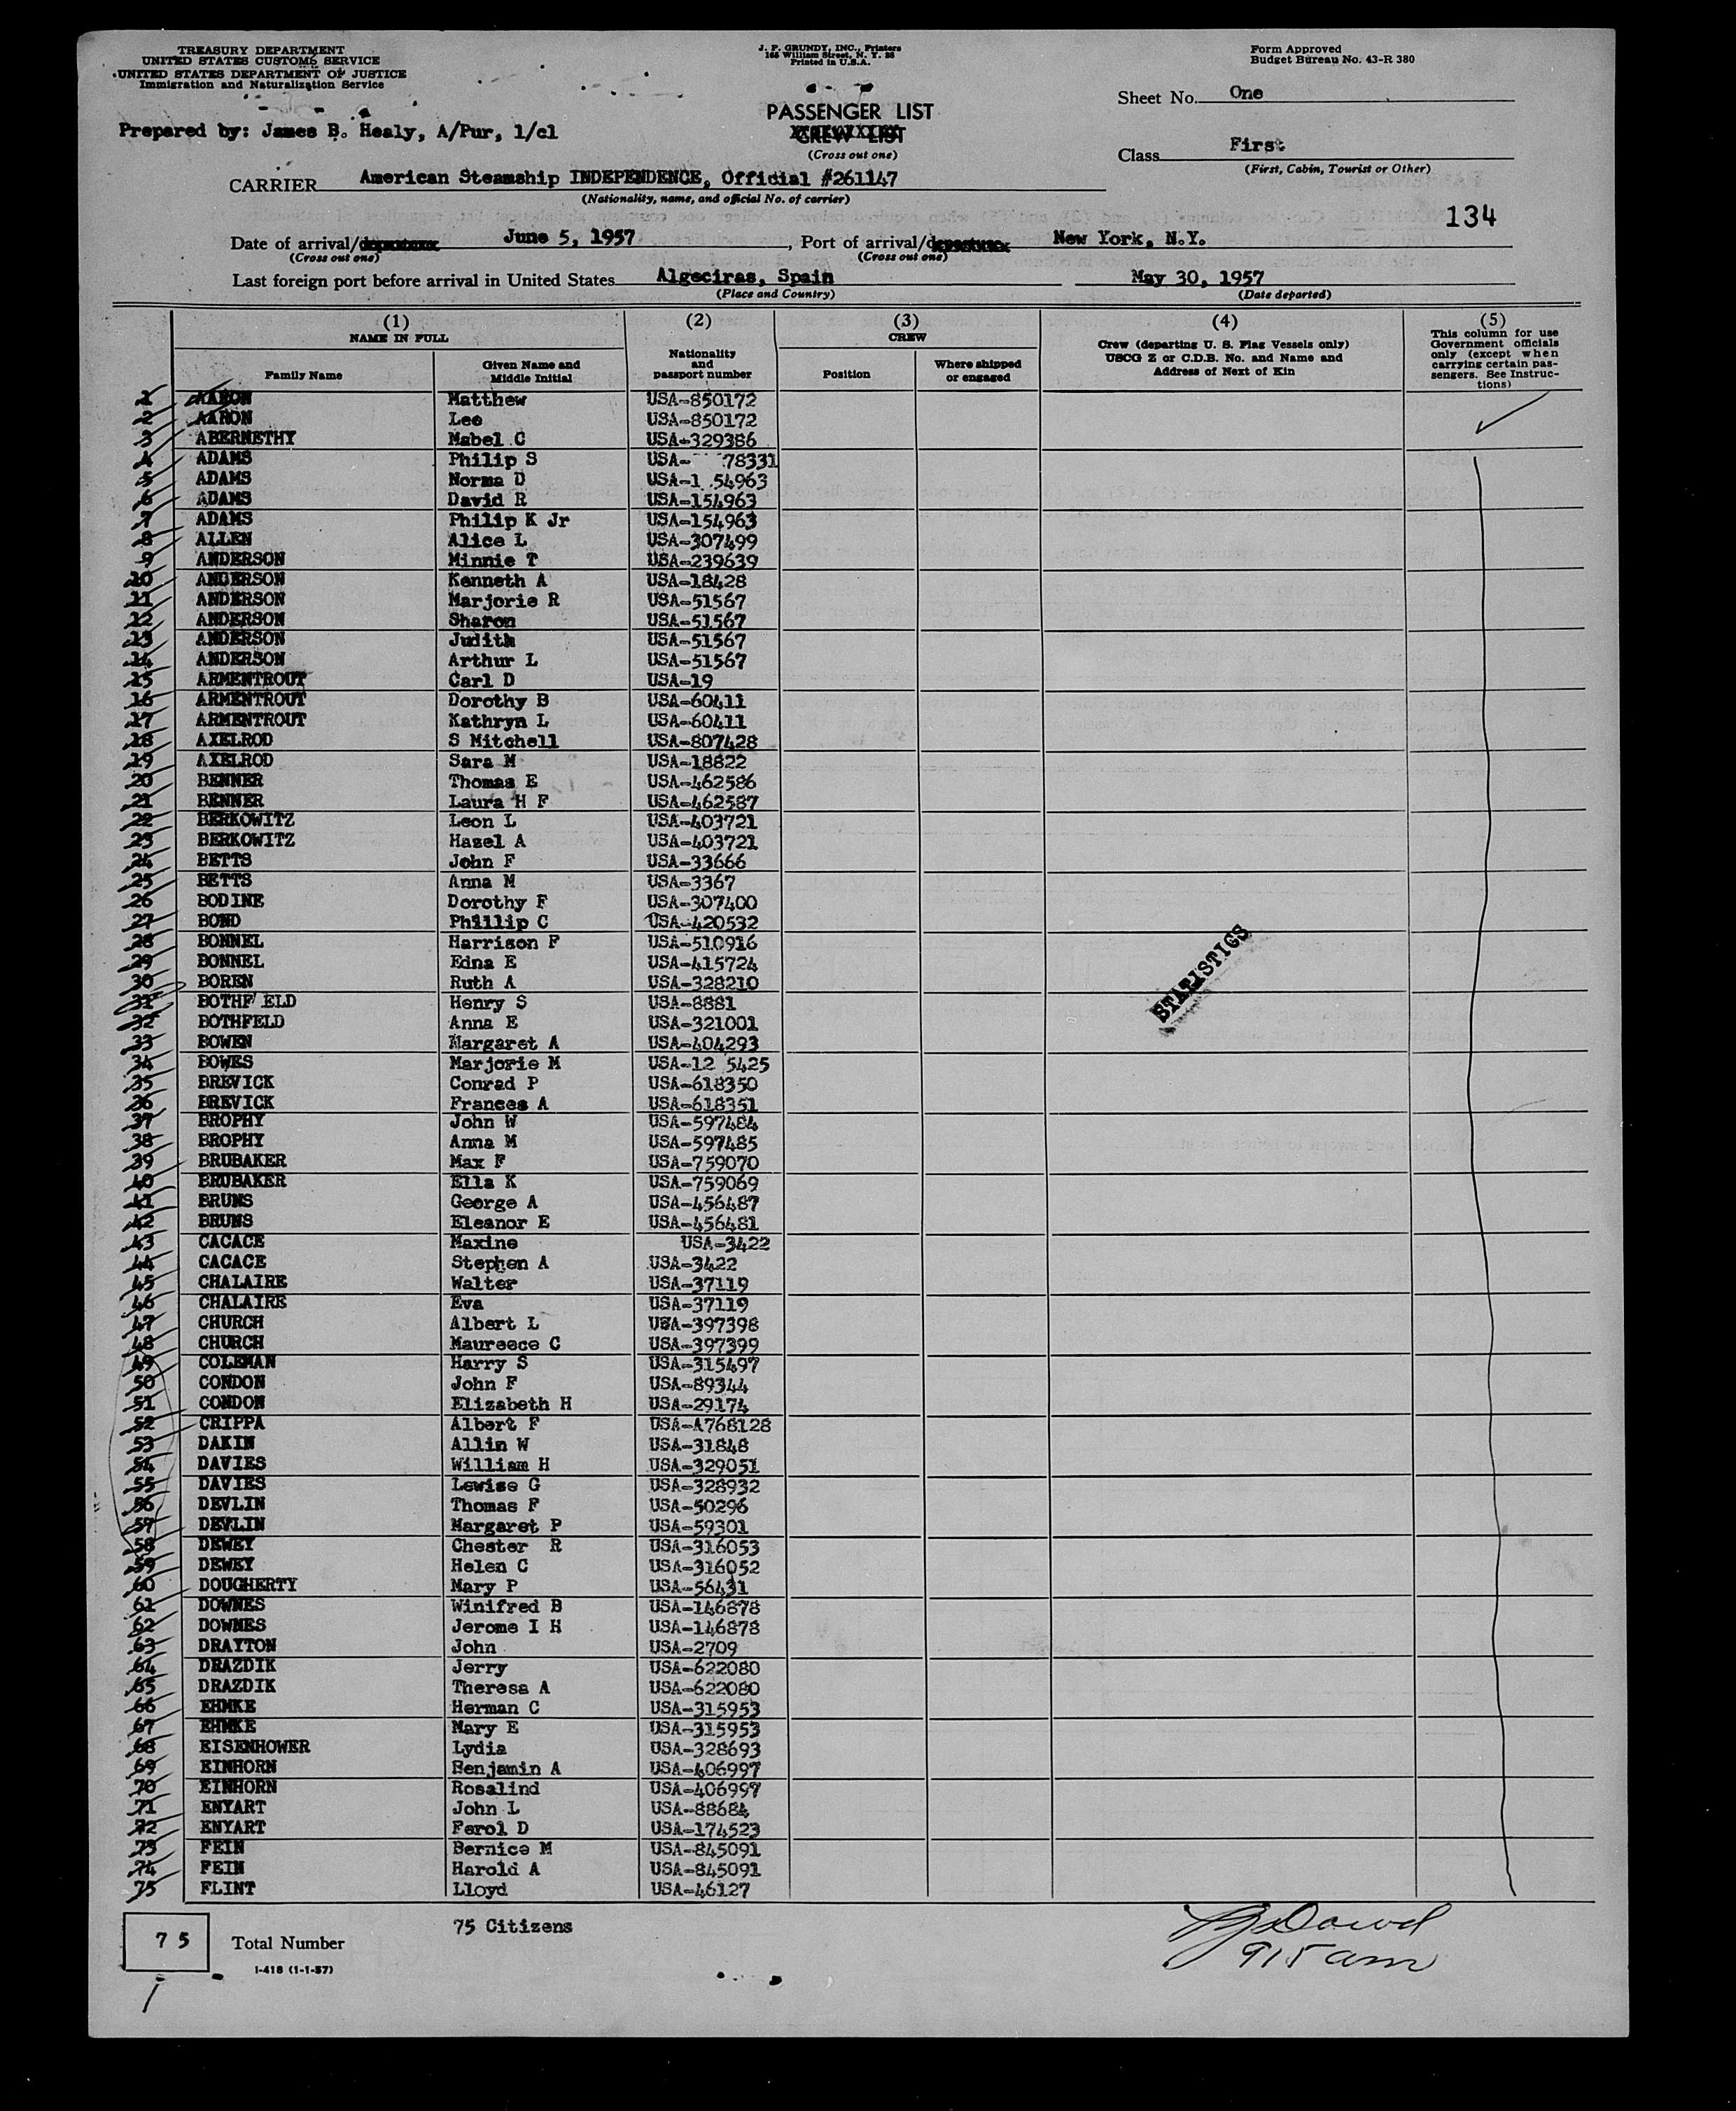 TREASURY DEPARTMENT
UNITED STATES CUSTOMS SERVICE
UNITED STATES DEPARTMENT OF JUSTICE
Immigration and Naturalization Service
J. F. GRUNDY, INC., Printers
Printed in U.S.A.
Form Approved
Budget Bureau No. 43-R 380
Sheet No. One
Prepared by: James B. Healy, A/Pur, 1/cl
PASSENGER LIST
CREW LIST
(Cross out one)
Class First
(First, Cabin, Tourist or Other)
CARRIER American Steamship INDEPENDENCE, Official #261147
(Nationality, name, and official No. of carrier)
134
Date of arrival/departure June 5, 1957, Port of arrival/departure New York, N.Y.
(Cross out one) (Cross out one)
Last foreign port before arrival in United States Algeciras, Spain May 30, 1957
(Place and Country) (Date departed)
(1) (2) (3) (4) (5)
NAME IN FULL
Family Name
Given Name and Middle Initial
Nationality and passport number
CREW
Position
Where shipped or engaged
Crew (departing U. S. Flag Vessels only)
USCG Z or C.D.B. No. and Name and
Address of Next of Kin
This column for use
Government officials
only (except when
carrying certain pas-
sengers. See Instruc-
tions)
1 AARON Matthew USA-850172
2 AARON Lee USA-850172
3 ABERNETHY Mabel C USA-329386
4 ADAMS Philip S USA- 78331
5 ADAMS Norma D USA-1 54963
6 ADAMS David R USA-154963
7 ADAMS Philip K Jr USA-154963
8 ALLEN Alice L USA-307499
9 ANDERSON Minnie T USA-239639
10 ANDERSON Kenneth A USA-18428
11 ANDERSON Marjorie R USA-51567
12 ANDERSON Sharon USA-51567
13 ANDERSON Judith USA-51567
14 ANDERSON Arthur L USA-51567
15 ARMENTROUT Carl D USA-19
16 ARMENTROUT Dorothy B USA-60411
17 ARMENTROUT Kathryn L USA-60411
18 AXELROD S Mitchell USA-807428
19 AXELROD Sara M USA-18822
20 BENNER Thomas E USA-462586
21 BENNER Laura H F USA-462587
22 BERKOWITZ Leon L USA-403721
23 BERKOWITZ Hazel A USA-403721
24 BETTS John F USA-33666
25 BETTS Anna M USA-3367
26 BODINE Dorothy F USA-307400
27 BOND Phillip C USA-420532
28 BONNEL Harrison F USA-510916
29 BONNEL Edna E USA-415724
30 BOREN Ruth A USA-328210
31 BOTHF ELD Henry S USA-8881
32 BOTHFELD Anna E USA-321001
33 BOWEN Margaret A USA-404293
34 BOWES Marjorie M USA-12 5425
35 BREVICK Conrad P USA-618350
36 BREVICK Frances A USA-618351
37 BROPHY John W USA-597484
38 BROPHY Anna M USA-597485
39 BRUBAKER Max F USA-759070
40 BRUBAKER Ella K USA-759069
41 BRUNS George A USA-456487
42 BRUNS Eleanor E USA-456481
43 CACACE Maxine USA-3422
44 CACACE Stephen A USA-3422
45 CHALAIRE Walter USA-37119
46 CHALAIRE Eva USA-37119
47 CHURCH Albert L USA-397398
48 CHURCH Maureece C USA-397399
49 COLEMAN Harry S USA-315497
50 CONDON John F USA-89344
51 CONDON Elizabeth H USA-29174
52 CRIPPA Albert F USA-A768128
53 DAKIN Allin W USA-31848
54 DAVIES William H USA-329051
55 DAVIES Lewise G USA-328932
56 DEVLIN Thomas F USA-50296
57 DEVLIN Margaret P USA-59301
58 DEWEY Chester R USA-316053
59 DEWEY Helen C USA-316052
60 DOUGHERTY Mary P USA-56431
61 DOWNES Winifred B USA-146878
62 DOWNES Jerome I H USA-146878
63 DRAYTON John USA-2709
64 DRAZDIK Jerry USA-622080
65 DRAZDIK Theresa A USA-622080
66 EHMKE Herman C USA-315953
67 EHMKE Mary E USA-315953
68 EISENHOWER Lydia USA-328693
69 EINHORN Benjamin A USA-406997
70 EINHORN Rosalind USA-406997
71 ENYART John L USA-88684
72 ENYART Ferol D USA-174523
73 FEIN Bernice M USA-845091
74 FEIN Harold A USA-845091
75 FLINT Lloyd USA-46127
STATISTICS
75 Total Number
75 Citizens
I-418 (1-1-57)
Dowd
915 am